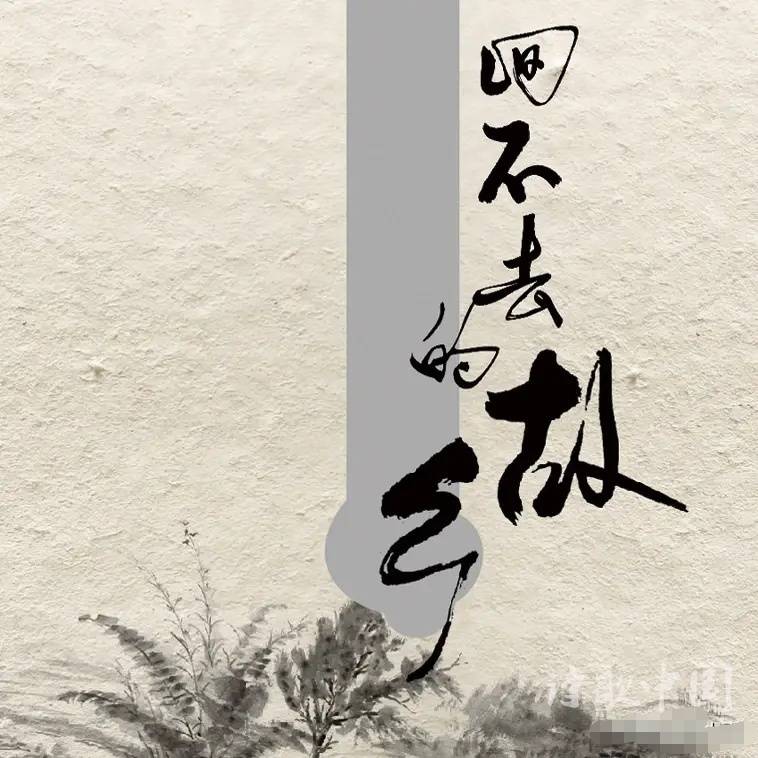 回不去的故乡
诗歌中国